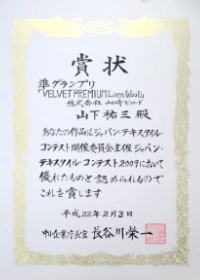 賞状
準グランプリ
「VELVET PREMIUM Linen Wool」
株式会社 山崎ビロード
山下祐三 殿
あなたの作品はジャパン・テキスタイル・
コンテスト開催委員会主催ジャパン・
テキスタイル・コンテスト2009において
優れたものと認められるので
これを賞します
平成22年2月3日
中小企業庁長官 長谷川榮一